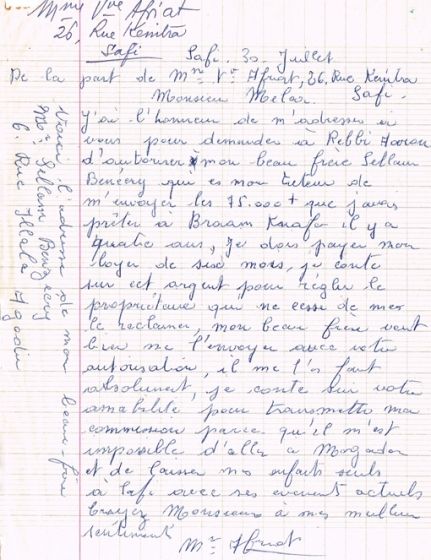 Mme Vve Afriat
26, Rue Kenitra
Safi
Safi. 30 Juillet
De la part de Mme Vve Afriat, 26, Rue Kenitra
Safi.
Monsieur Melar.
J'ai l'honneur de m'adresser a
vous pour demander à Rebbi
d'autoriser mon beau frere Sellam
qui es mon tuteur de
m'envoyer les 75.000 que j'avais
prêter à Braam Knafo il y a
quatre ans, Je dois payer mon
loyer de six mois, je conte
sur cet argent pour régler le
propriétaire que ne cesse de mes
le reclamer, mon beau frère veut
bien me l'envoyer avec votre
autorisation, il me l'a faut
absolument, je conte sur votre
amabilité pour transmettre ma
commission parce qu'il m'est
impossible d'aller a Mogador
et de laisser mes enfants seuls
à Safi avec ses evenents actuels
Croyez Monsieur à mes meilleur
sentiments
Mme Afriat
Voici l'adresse de mon beau-frère
Mr. Sellam
6. Rue Agadir